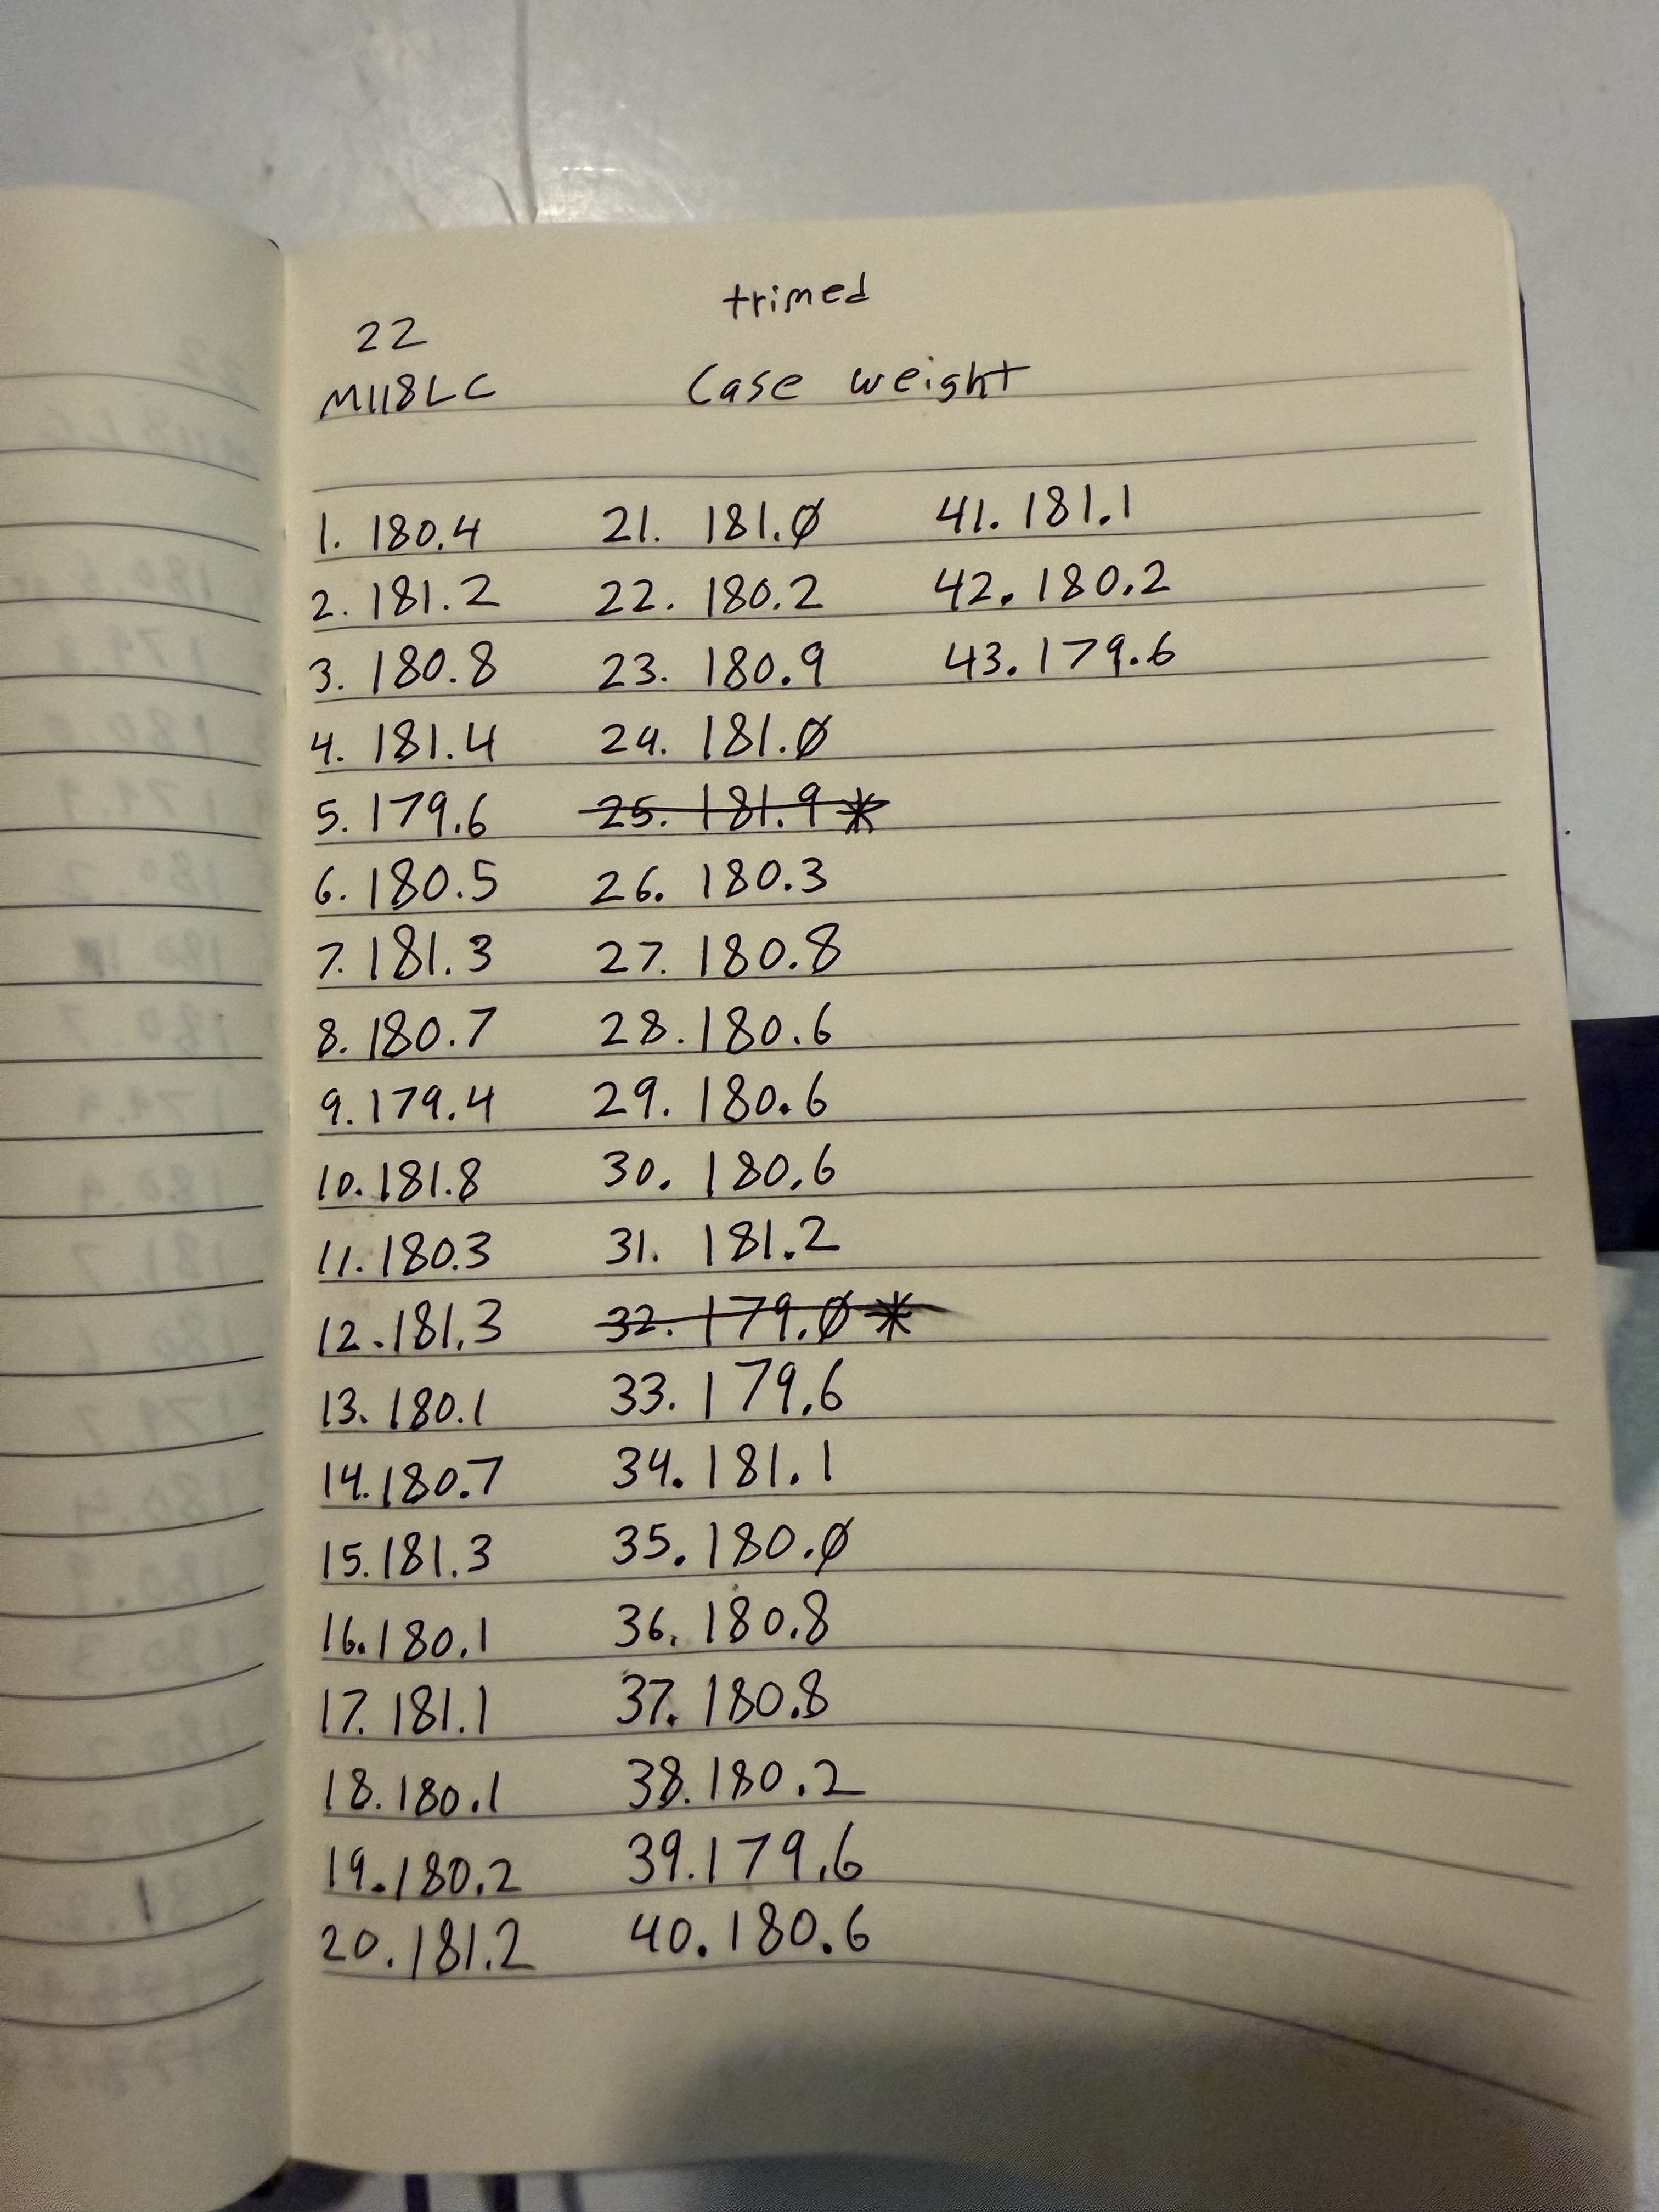 trimed
22
M118LC Case weight
1. 180.4 21. 181.0 41. 181.1
2. 181.2 22. 180.2 42. 180.2
3. 180.8 23. 180.9 43. 179.6
4. 181.4 24. 181.0
5. 179.6 25. 181.9 *
6. 180.5 26. 180.3
7. 181.3 27. 180.8
8. 180.7 28. 180.6
9. 179.4 29. 180.6
10. 181.8 30. 180.6
11. 180.3 31. 181.2
12. 181.3 32. 179.0 *
13. 180.1 33. 179.6
14. 180.7 34. 181.1
15. 181.3 35. 180.0
16. 180.1 36. 180.8
17. 181.1 37. 180.8
18. 180.1 38. 180.2
19. 180.2 39. 179.6
20. 181.2 40. 180.6